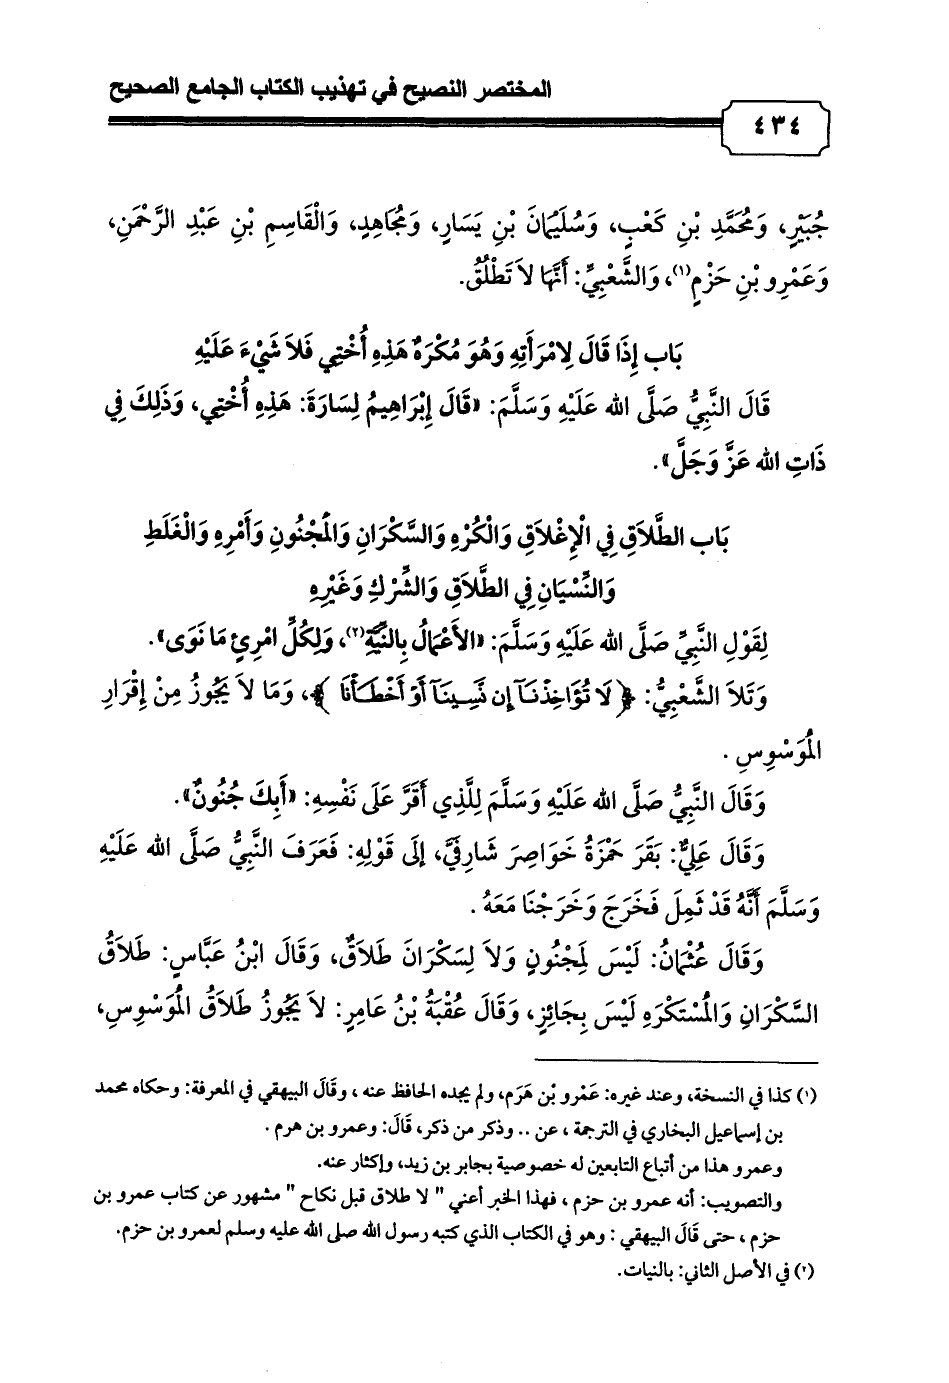 المختصر النصيح في تهذيب الكتاب الجامع الصحيح
٤٣٤
جُبَيْرٍ، وَمُحَمَّدِ بْنِ كَعْبٍ، وَسُلَيْمَانَ بْنِ يَسَارٍ، وَمُجَاهِدٍ، وَالْقَاسِمِ بْنِ عَبْدِ الرَّحْمَنِ،
وَعَمْرِو بْنِ حَزْمٍ(١)، وَالشَّعْبِيِّ: أَنَّهَا لاَ تَطْلُقُ.
بَاب إِذَا قَالَ لِامْرَأَتِهِ وَهُوَ مُكْرَهٌ هَذِهِ أُخْتِي فَلاَ شَيْءَ عَلَيْهِ
قَالَ النَّبِيُّ صَلَّى الله عَلَيْهِ وَسَلَّمَ: «قَالَ إِبْرَاهِيمُ لِسَارَةَ: هَذِهِ أُخْتِي، وَذَلِكَ فِي
ذَاتِ الله عَزَّ وَجَلَّ».
بَاب الطَّلاَقِ فِي الْإِغْلاَقِ وَالْكُرْهِ وَالسَّكْرَانِ وَالْمَجْنُونِ وَأَمْرِهِ وَالْغَلَطِ
وَالنِّسْيَانِ فِي الطَّلاَقِ وَالشِّرْكِ وَغَيْرِهِ
لِقَوْلِ النَّبِيِّ صَلَّى الله عَلَيْهِ وَسَلَّمَ: «الأَعْمَالُ بِالنِّيَّةِ(٢)، وَلِكُلِّ امْرِئٍ مَا نَوَى».
وَتَلاَ الشَّعْبِيُّ: ﴿لَا تُؤَاخِذْنَآ إِن نَّسِينَآ أَوْ أَخْطَأْنَا﴾، وَمَا لاَ يَجُوزُ مِنْ إِقْرَارِ
الْمُوَسْوِسِ .
وَقَالَ النَّبِيُّ صَلَّى الله عَلَيْهِ وَسَلَّمَ لِلَّذِي أَقَرَّ عَلَى نَفْسِهِ: «أَبِكَ جُنُونٌ».
وَقَالَ عَلِيٌّ: بَقَرَ حَمْزَةُ خَوَاصِرَ شَارِفَيَّ، إِلَى قَوْلِهِ: فَعَرَفَ النَّبِيُّ صَلَّى الله عَلَيْهِ
وَسَلَّمَ أَنَّهُ قَدْ ثَمِلَ فَخَرَجَ وَخَرَجْنَا مَعَهُ .
وَقَالَ عُثْمَانُ: لَيْسَ لِمَجْنُونٍ وَلاَ لِسَكْرَانَ طَلاَقٌ، وَقَالَ ابْنُ عَبَّاسٍ: طَلاَقُ
السَّكْرَانِ وَالْمُسْتَكْرَهِ لَيْسَ بِجَائِزٍ، وَقَالَ عُقْبَةُ بْنُ عَامِرٍ: لاَ يَجُوزُ طَلاَقُ الْمُوَسْوِسِ،
(١) كذا في النسخة، وعند غيره: عَمْرو بْن هَرَم، ولم يجده الحافظ عنه ، وقَالَ البيهقي في المعرفة: وحكاه محمد
بن إسماعيل البخاري في الترجمة ، عن .. وذكر من ذكر، قَالَ: وعمرو بن هرم .
وعمرو هذا من أتباع التابعين له خصوصية بجابر بن زيد، وإكثار عنه.
والتصويب: أنه عمرو بن حزم ، فهذا الخبر أعني " لا طلاق قبل نكاح " مشهور عن كتاب عمرو بن
حزم ، حتى قَالَ البيهقي : وهو في الكتاب الذي كتبه رسول الله صلى الله عليه وسلم لعمرو بن حزم.
(٢) في الأصل الثاني: بالنيات.